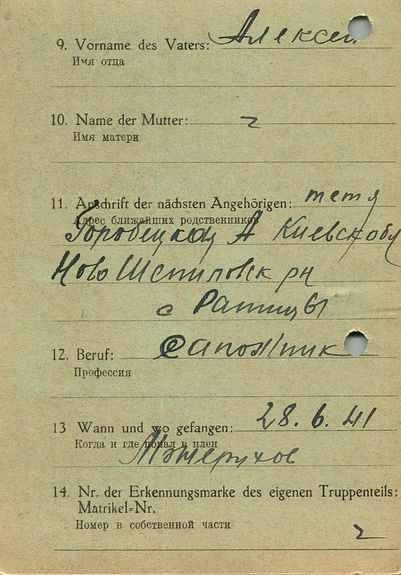 9. Vorname des Vaters: Алексей
Имя отца
10. Name der Mutter: 2
Имя матери
11. Anschrift der nächsten Angehörigen: тетя
Адрес ближайших родственников
Горовецкая А Киевск обл
Ново Шепиловск рн
с Ратицы
12. Beruf: Сапожник
Профессия
13 Wann und wo gefangen: 28. 6. 41
Когда и где попал в плен
14. Nr. der Erkennungsmarke des eigenen Truppenteils:
Matrikel-Nr.
Номер в собственной части
2